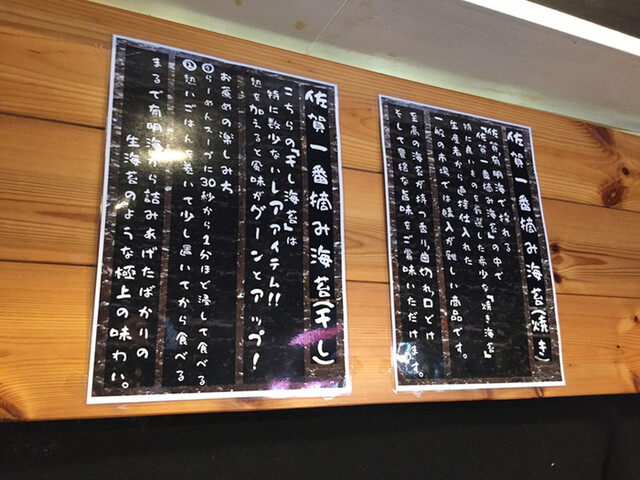 佐賀一番摘み海苔(焼き)
佐賀有明海で採れる
『佐賀一番摘み海苔』の中で
特に良いものを厳選した希少な『焼き海苔』
生産者から直接仕入れた
一般の市場では購入が難しい商品です。
至高の海苔が持つ香り、歯切れ、口どけ
そして豊穣な旨味をご賞味いただけます。
佐賀一番摘み海苔(干し)
こちらの『干し海苔』は
特に数少ないレアアイテム!!
熱を加えると風味がグーンとアップ!
お薦めの楽しみ方
①らーめんスープに30秒から1分ほど浸して食べる
②熱いごはんを巻いて少し置いてから食べる
まるで有明海から詰みあげたばかりの
生海苔のような極上の味わい。